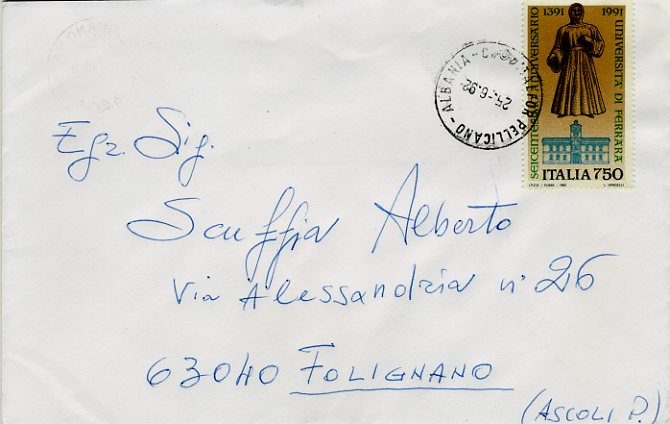 1391 1991
SEICENTESIMO ANNIVERSARIO
UNIVERSITÀ DI FERRARA
ITALIA 750
I.P.Z.S. - ROMA - 1991 L. VANGELLI
ALBANIA - FOR PELLICANO -
25.-6.92-
Egr. Sig.
Scuffia Alberto
Via Alessandria n° 26
63040 FOLIGNANO
(ASCOLI P.)